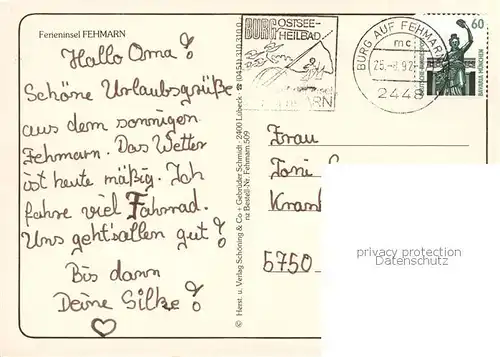 Ferieninsel FEHMARN
Hallo Oma!
Schöne Urlaubsgrüße
aus dem sonnigen
Fehmarn. Das Wetter
ist heute mäßig. Ich
fahre viel Fahrrad.
Uns geht's allen gut!
Bis dann
Deine Silke!
© Herst. u. Verlag Schöning & Co + Gebrüder Schmidt · 2400 Lübeck · ☎ (0451) 310 310
nz Bestell-Nr. Fehmarn 509
BURG OSTSEE-
HEILBAD
BURG AUF FEHMARN
mc
2448
60
DEUTSCHE BUNDESPOST
BAVARIA MÜNCHEN
Frau
Toni
Kran
5750
privacy protection
Datenschutz